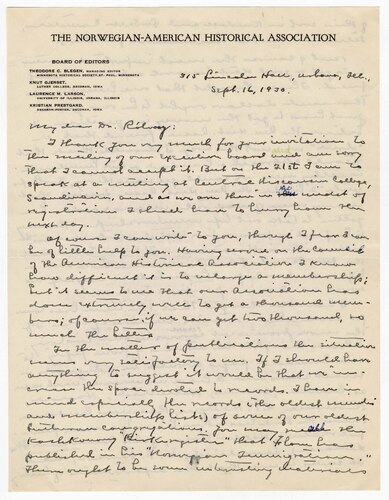 THE NORWEGIAN-AMERICAN HISTORICAL ASSOCIATION
BOARD OF EDITORS
THEODORE C. BLEGEN, MANAGING EDITOR
MINNESOTA HISTORICAL SOCIETY, ST. PAUL, MINNESOTA
KNUT GJERSET,
LUTHER COLLEGE, DECORAH, IOWA
LAURENCE M. LARSON,
UNIVERSITY OF ILLINOIS, URBANA, ILLINOIS
KRISTIAN PRESTGARD,
DECORAH-POSTEN, DECORAH, IOWA
315 Lincoln Hall, Urbana, Ill.,
Sept. 16, 1930.
My dear Dr. Rölvaag:
I thank you very much for your invitation to
the meeting of our executive board and am sorry
that I cannot accept it. But on the 21st I am to
speak at a meeting at Central Wisconsin College,
Scandinavia, and as we are then in the midst of
registration I shall have to hurry home the
next day.
Of course I can write to you, though I fear I can
be of little help to you. Having served on the Council
of the American Historical Association I know
how difficult it is to enlarge a membership;
but it seems to me that our Association has
done extremely well to get a thousand mem-
bers; of course if we can get two thousand, so
much the better.
In the matter of publications the situation
seems very satisfactory to me. If I should have
anything to suggest it would be that we in-
crease the space devoted to records. I have in
mind especially the records (the oldest
and membership lists) of some of our oldest
Lutheran congregations. You may recall the
Koshkonong "Kirkeregister" that Flom has
published in his "Norwegian Immigration."
There ought to be some interesting materials